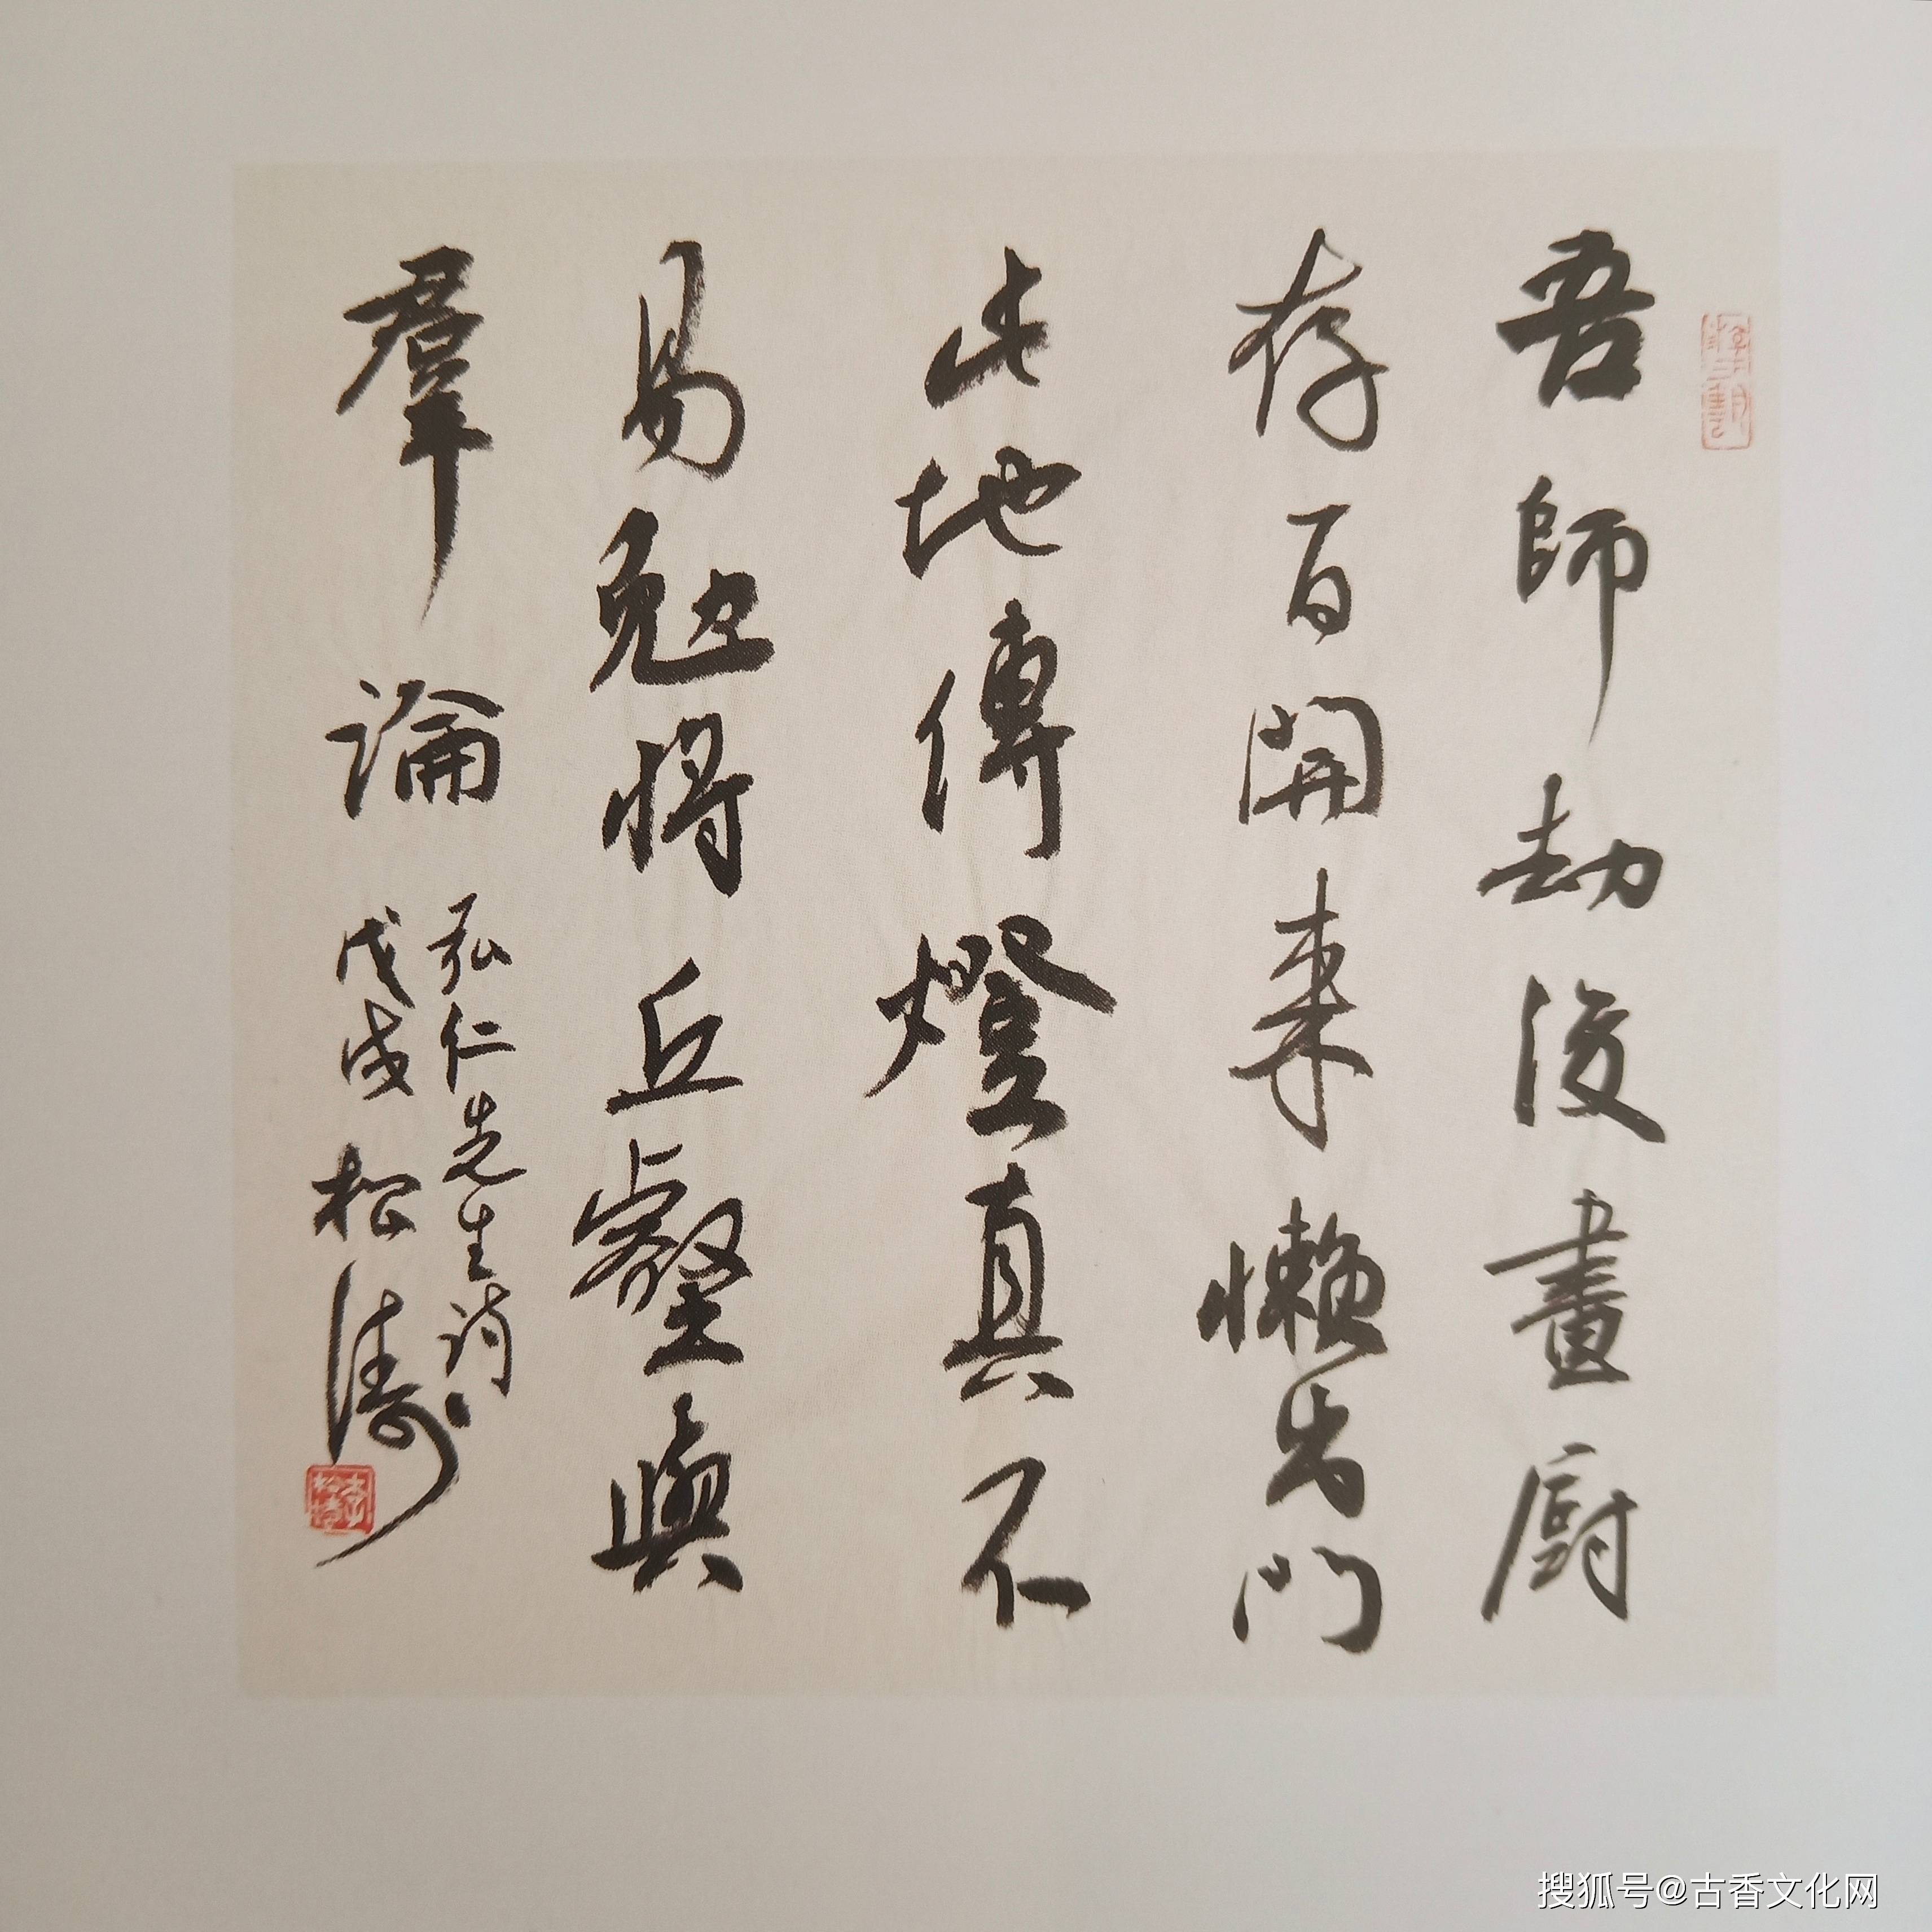 吾師劫後畫廚
存百開來懶出門
此地傳燈真不
易勉將丘壑與
羣論
弘仁先生詩
戊戌松濤
搜狐号@古香文化网